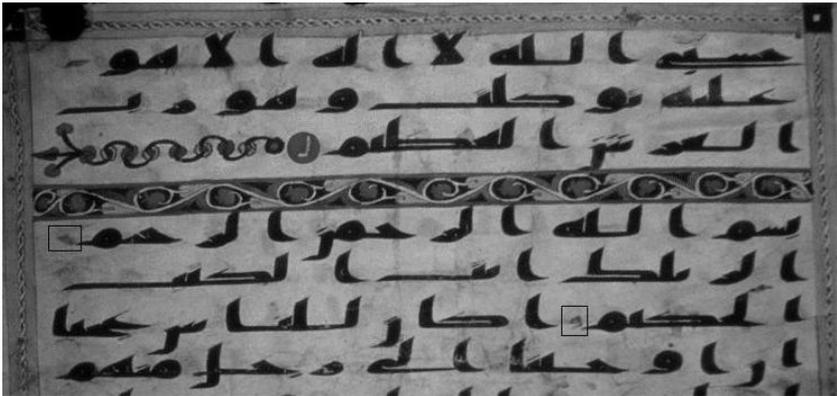 حسبى الله لا اله الا هو
عليه توكلت و هو رب
العرش العظيم
بسم الله الرحمن الرحيم
الر تلك ايت الكتب
الحكيم اكان للناس عجبا
ان اوحينا الى رجل منهم